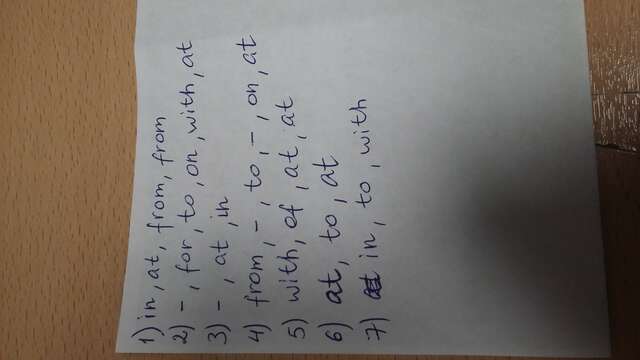 1) in, at, from, from
2) -, for, to, on, with, at
3) -, at, in
4) from, -, to, -, on, at
5) with, of, at, at
6) at, to, at
7) in, to, with